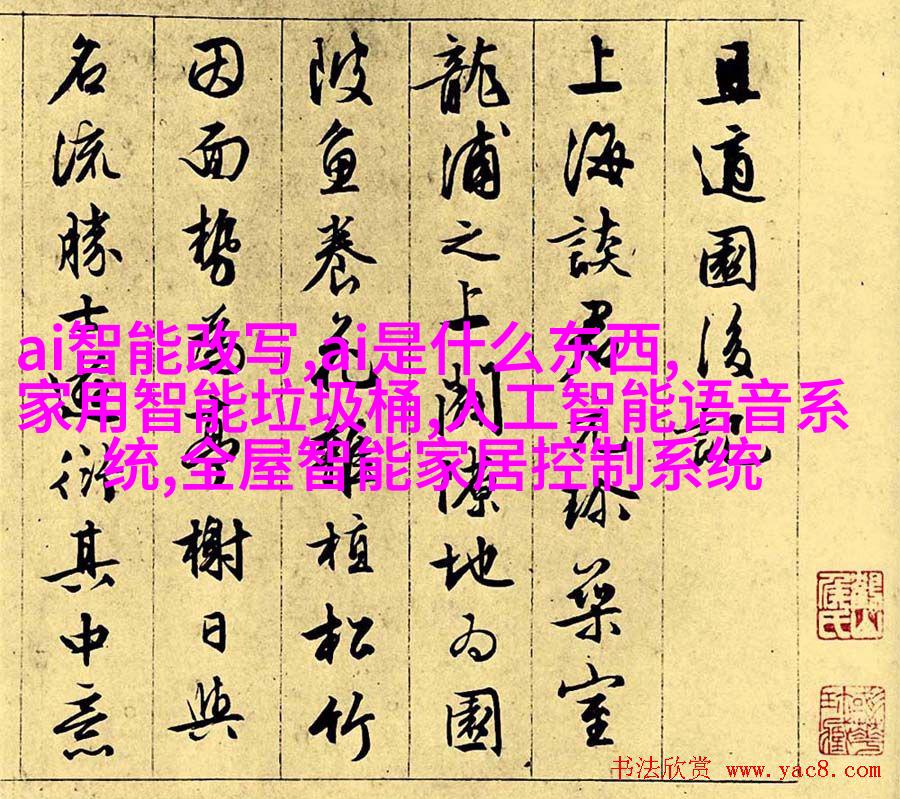 且適園後記
上海談君元珍築室
龍浦之上開隙地为園
陂魚養花雜植松竹
因面勢為臺榭日與
名流勝士遊衍其中意
ai智能改写,ai是什么东西,
家用智能垃圾桶,人工智能语音系
统,全屋智能家居控制系统
书法欣赏 www.yac8.com